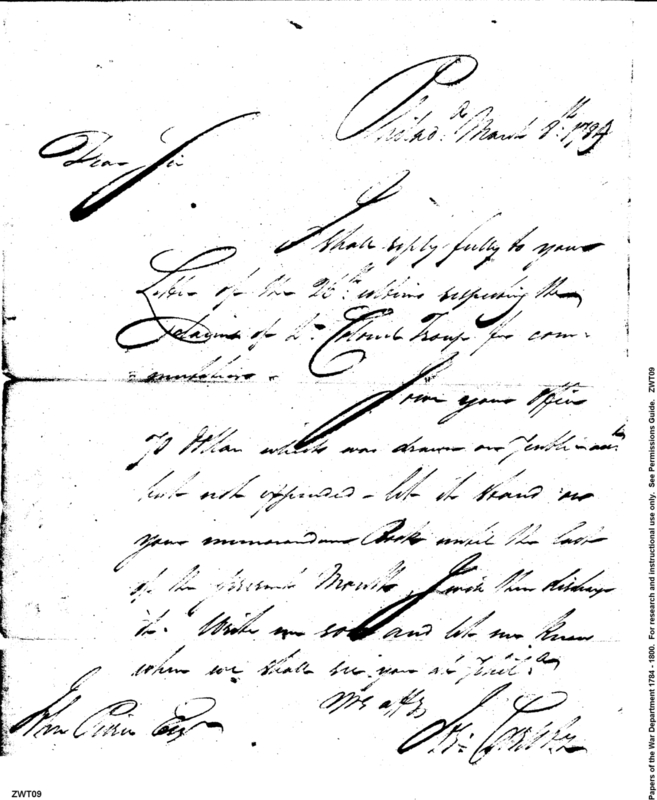 Philad.ª March 8th. 1789
Dear Sir
I shall reply fully to your
Letter of the 26th. ultimo respecting the
Claims of Lt. Colonel Troup for com-
mutation.
I owe your Office
70 Dollars which was drawn on
but not expended - let it stand on
your memorandum Book until the last
of the present Month, I will then discharge
it. Write me soon and let me know
when we shall see you at Phil.ª
Yrs
Jno. Pierce Esqr
ZWT09
Papers of the War Department 1784 - 1800. For research and instructional use only. See Permissions Guide. ZWT09